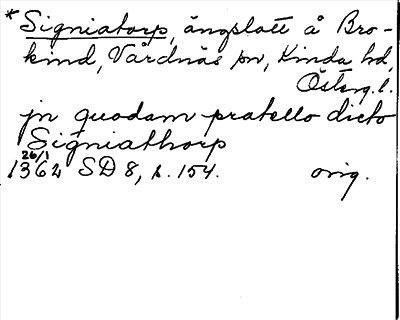 * Signiatorp, ängslott å Bro-
kind, Vårdnäs sn, Kinda hd,
Österg. l.
jn quodam pratello dicto
Signiathorp
26/1
1362 SD 8, s. 154. orig.